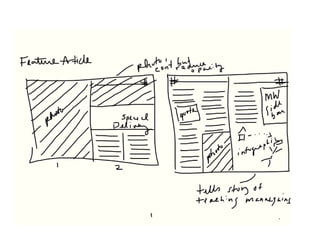 photo's
cont but reduce
opacity
Feature Article
photo
Special
Delivery
quote
photo
MW
Side
bar
infographic
1
2
tells story of
tracking mannequins
1